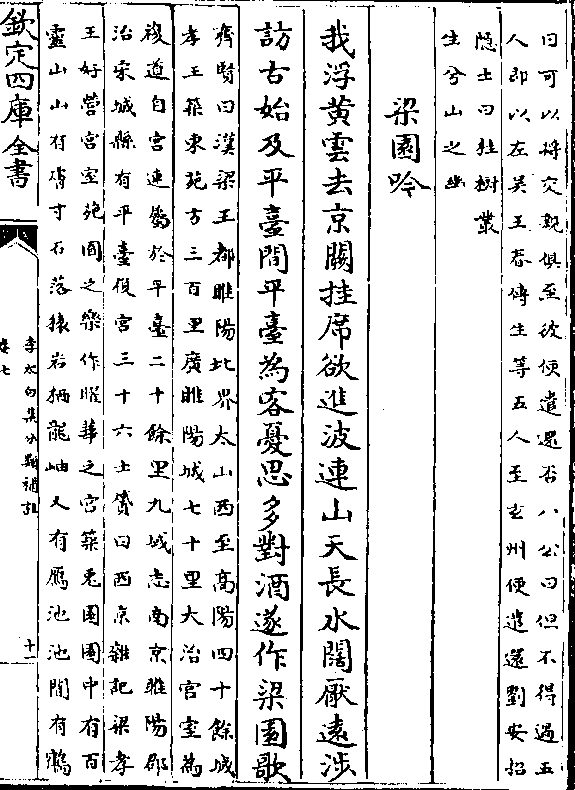 曰可以将交親俱至彼便遣還否八公曰但不得過五
人即以左吳王眷傅生等五人至玄州便遣還劉安招
隐士曰桂樹叢
生兮山之幽
梁園吟
我浮黄雲去京闕挂席欲進波連山天長水闊厭遠涉
訪古始及平臺間平臺為客憂思多對酒遂作梁園歌
齊賢曰漢梁王都睢陽北界太山西至髙陽四十餘城
孝王築東苑方三百里廣睢陽城七十里大治宫室為
複道自宫連屬於平臺二十餘里九域志南京睢陽郡
治宋城縣有平臺復宫三十六士贇曰西京雜記梁孝
王好營宫室苑囿之樂作曜華之宫築兎園園中有百
靈山山有膚寸石落猿岩栖龍岫又有鴈池池間有鶴
欽定四庫全書
李太白集分類補註
卷七
十